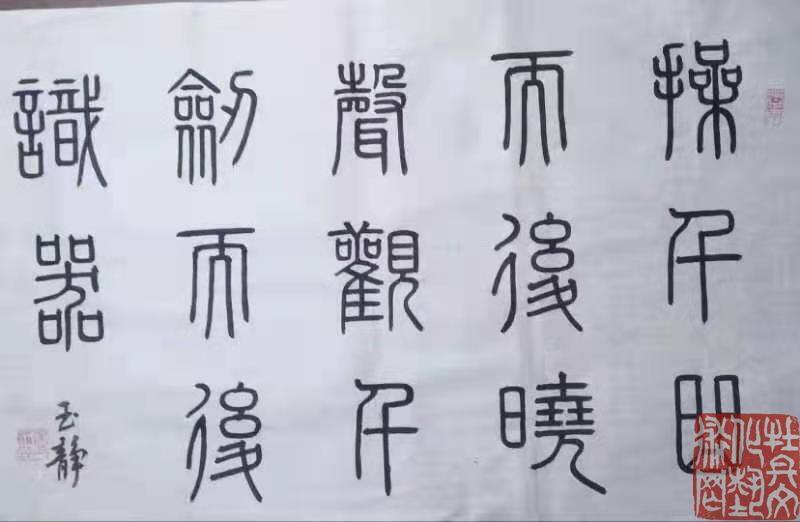 操千曲
而後曉
聲觀千
劍而後
識器
玉靜